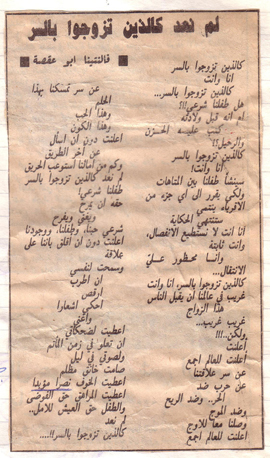 لم نعد كالذين تزوجوا بالسر
■ فالنتينا ابو عقصة ■
كالذين تزوجوا بالسر
انا وانت
كالذين تزوجوا بالسر...
هل طفلنا شرعي؟!!
ام انه قبل ولادته
كتب عليه الحزن
والرحيل!!
كالذين تزوجوا بالسر
انا وانت!
سينشأ طفلنا بين المتاهات
ولكي يقرر الى أي جزء من
الاقرباء ينتمي
ستنتهي الحكاية
انا انت لا نستطيع الانفصال،
وانت ثابتة
وانا محظور علي
الانتقال...
كالذين تزوجوا بالسر، انا وانت
غريب في عالمنا أن يقبل الناس
هذا الزواج
غريب غريب...
ولكن...!!!
أعلنت
أعلنت للعالم اجمع
عن سر علاقتنا
عن حرب ضد
الحر.. وضد الريح
وضد الموج
وصلنا معا للاوج
اعلنت للعالم اجمع
عن سر تمسكنا بهذا
الحلم
وهذا الحب
وهذا الكون
أعلنت دون ان اسأل
عن آخر الطريق
وكم من أمالنا استوعب الحريق
لم نعد كالذين تزوجوا بالسر
طفلنا شرعي!
حقه ان يمرح
ويغني ويفرح
شرعي حبنا، وطفلنا، ووجودنا
أعلنت دون ان اقلق باننا على
علاقة
وسمحت لنفسي
ان اطرب
ارقص
احكي اشعارا
واغني
اعطيت لضحكاتي
ان تعلو في زمن المأتم
ولصوتي في ليل
صامت خانق مظلم
اعطيت الخوف نصرا مؤبدا
اعطيت المراهق حق الفوضى
والطفل حق العيش للامل..
لم نعد
كالذين تزوجوا بالسر!!...